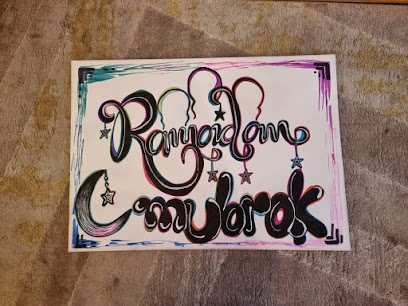 Ramadan
mubrak